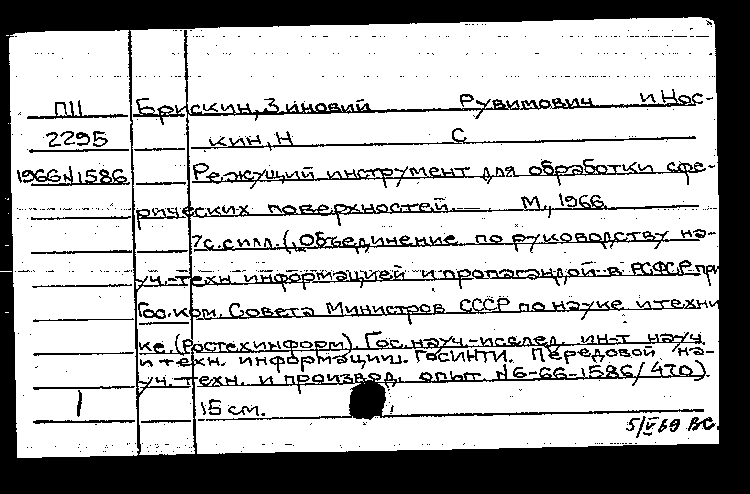 П11 Брискин, Зиновий Рувимович и Нос-
2295 кин, Н С
1966N1586 Режущий инструмент для обработки сфе-
рических поверхностей. — М., 1966.
7с. силл. (Объединение по руководству на-
уч.-техн. информацией и пропагандой в РСФСР при
Гос. ком. Совета Министров СССР по науке и техни
ке. (Ростехинформ). Гос. науч.-исслед. ин-т науч.
и техн. информации. ГОСИНТИ. Передовой на-
уч. техн. и производ. опыт. N6-66-1586/470)
1 15 см.
5/V 69 ВС.